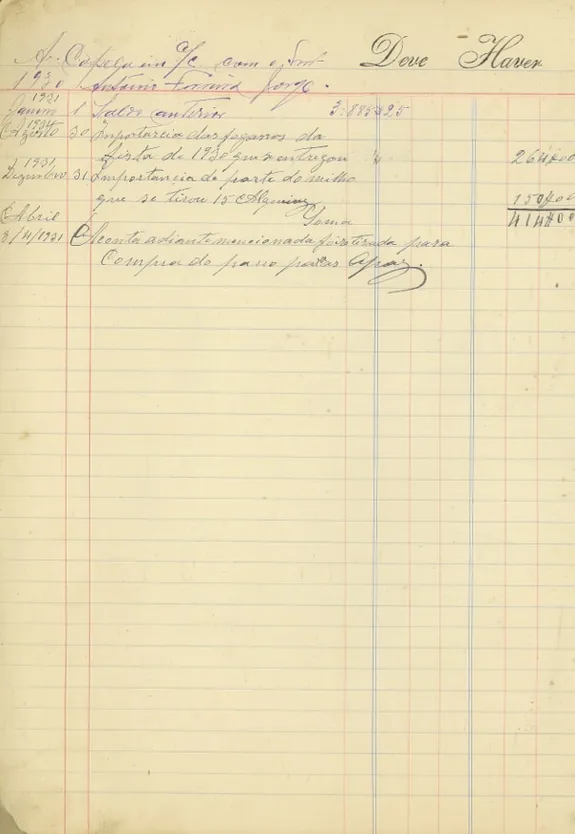 A Capela em C/C com o Snr Deve Haver
1930 Antonio Jorge.
1931
Janeiro 1 Saldo anterior 3:885$25
Agosto 30 Importancia dos fogaros da
festa de 1930 que entregou 264$00
1931
Dezembro 31 Importancia de parte do milho
que se tirou 15 Alqueires 150$00
Soma 414$00
Abril
3/4/1931 A conta adiante mencionada foi tirada para
Compra do pano para as Opas.